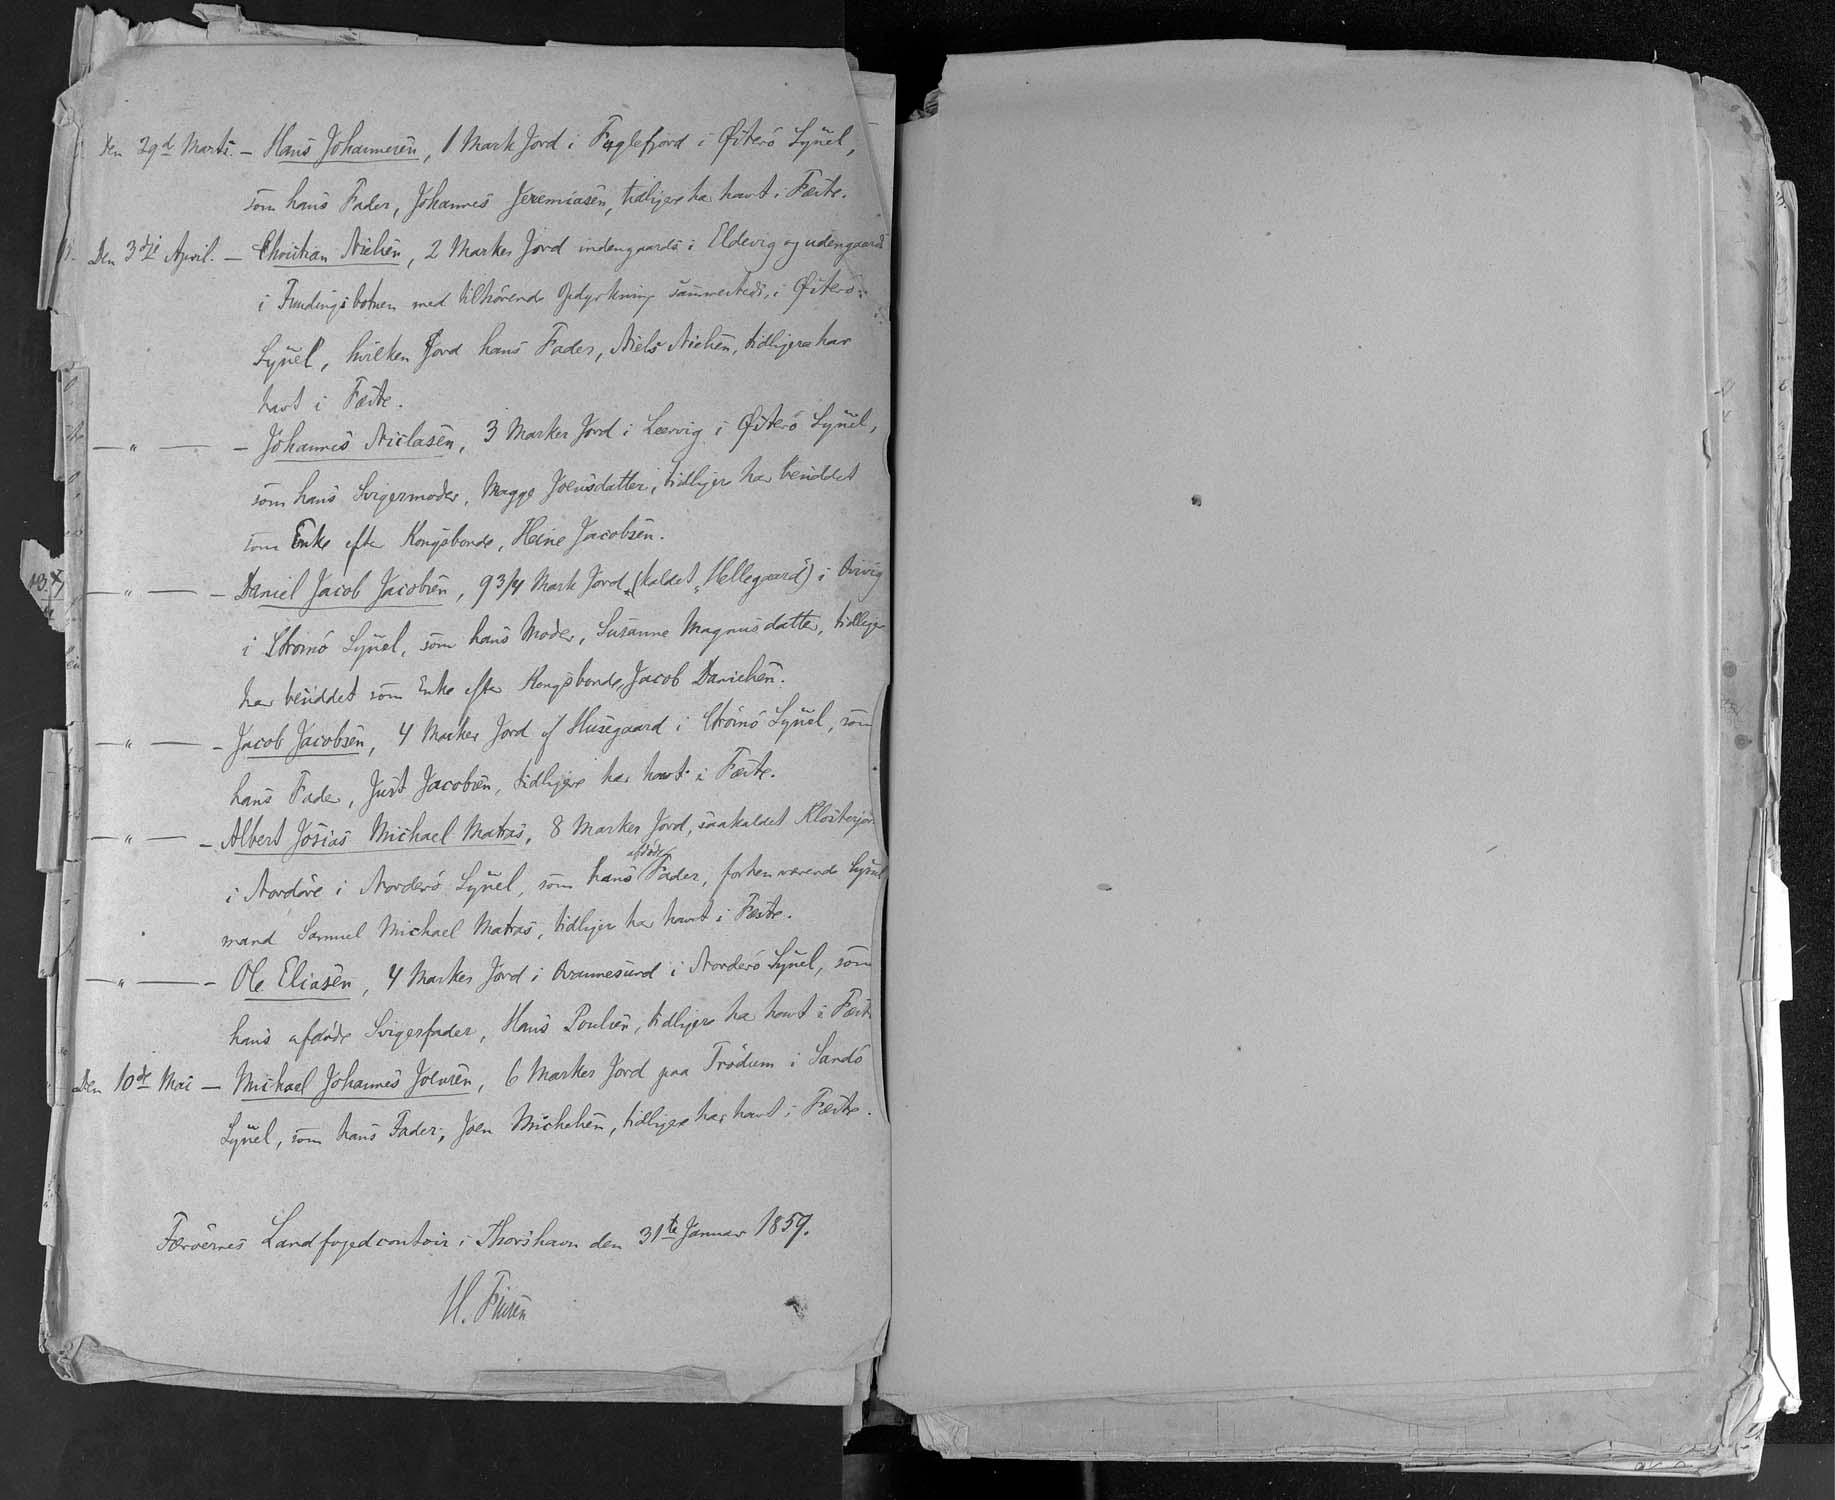 Den 29de Marts. — Hans Johannesen, 1 Mark Jord i Fuglefjord i Østerö Syssel,
som hans Fader, Johannes Jeremiasen, tidligere har havt i Fæste.
Den 3die April. — Christian Nielsen, 2 Marker Jord indengaards i Eldevig og udengaards
i Fundingsbotnen med tilhörende Opdyrkning sammesteds, i Østerö
Syssel, hvilken Jord hans Fader, Niels Nielsen, tidligere har
havt i Fæste.
— " — — Johannes Niclasen, 3 Marker Jord i Leervig i Østerö Syssel,
som hans Svigermoder, Magge Joensdatter, tidligere har besiddet
som Enke efter Kongsbonde, Heine Jacobsen.
— " — — Daniel Jacob Jacobsen, 9 3/4 Mark Jord (kaldet „Hellegaard") i Qvivig
i Strömö Syssel, som hans Moder, Susanne Magnusdatter, tidligere
har besiddet som Enke efter Kongsbonde, Jacob Danielsen.
— " — — Jacob Jacobsen, 4 Marker Jord af Husegaard i Strömö Syssel, som
hans Fader, Just Jacobsen, tidligere har havt i Fæste.
— " — — Albert Josias Michael Matras, 8 Marker Jord, saakaldet Klosterjord
i Nordöre i Norderö Syssel, som hans afdöde Fader, forhenværende Syssel
mand Samuel Michael Matras, tidligere har havt i Fæste.
— " — — Ole Eliasen, 4 Marker Jord i Qvannesund i Norderö Syssel, som
hans afdöde Svigerfader, Hans Poulsen, tidligere har havt i Fæste
Den 10de Mai — Michael Johannes Joensen, 6 Marker Jord paa Trödum i Sandö
Syssel, som hans Fader, Joen Michelsen, tidligere har havt i Fæste.
Færöernes Landfogedcontoir i Thorshavn den 31te Januar 1859.
H. Finsen